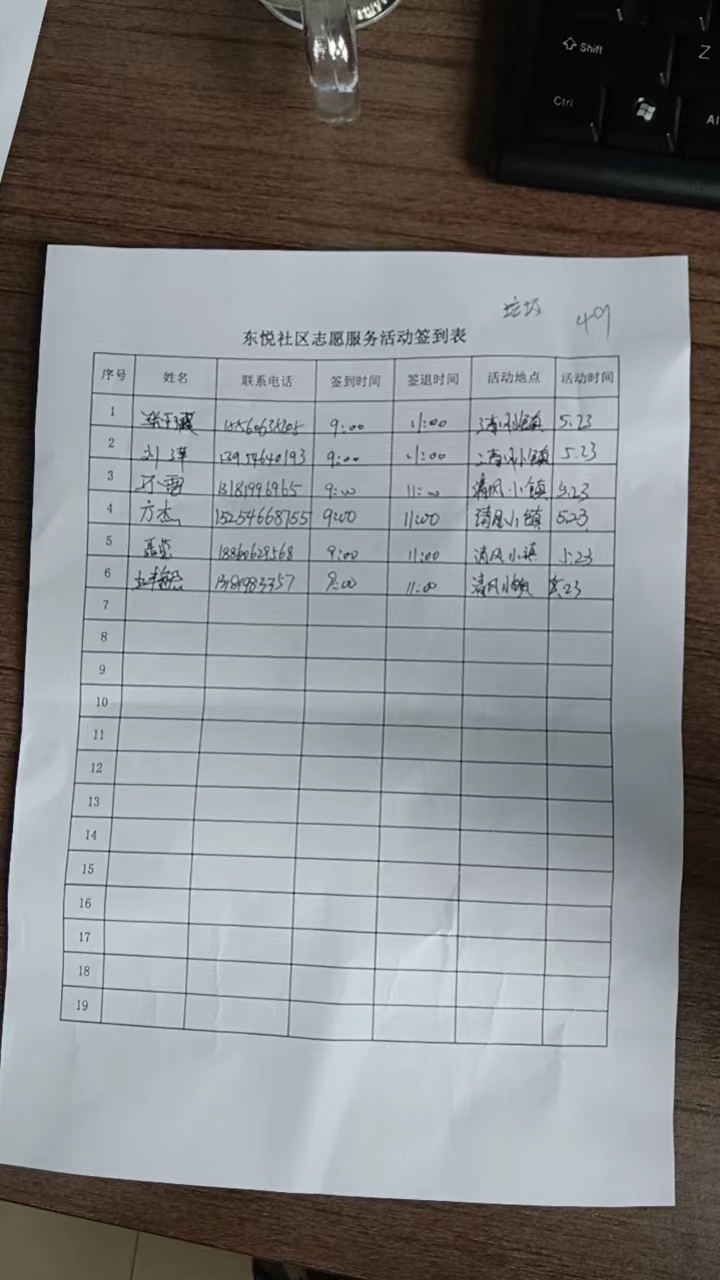 Shift
Z
Ctrl
Al
垃圾 49
东悦社区志愿服务活动签到表
序号 姓名 联系电话 签到时间 签退时间 活动地点 活动时间
1 9:00 11:00 清风小镇 5.23
2 刘萍 13954640193 9:00 11:00 清风小镇 5.23
3 13181996965 9:00 11:00 清风小镇 5.23
4 方杰 15254668755 9:00 11:00 清风小镇 5.23
5 18860629568 9:00 11:00 清风小镇 5.23
6 13181983357 9:00 11:00 清风小镇 5.23
7
8
9
10
11
12
13
14
15
16
17
18
19